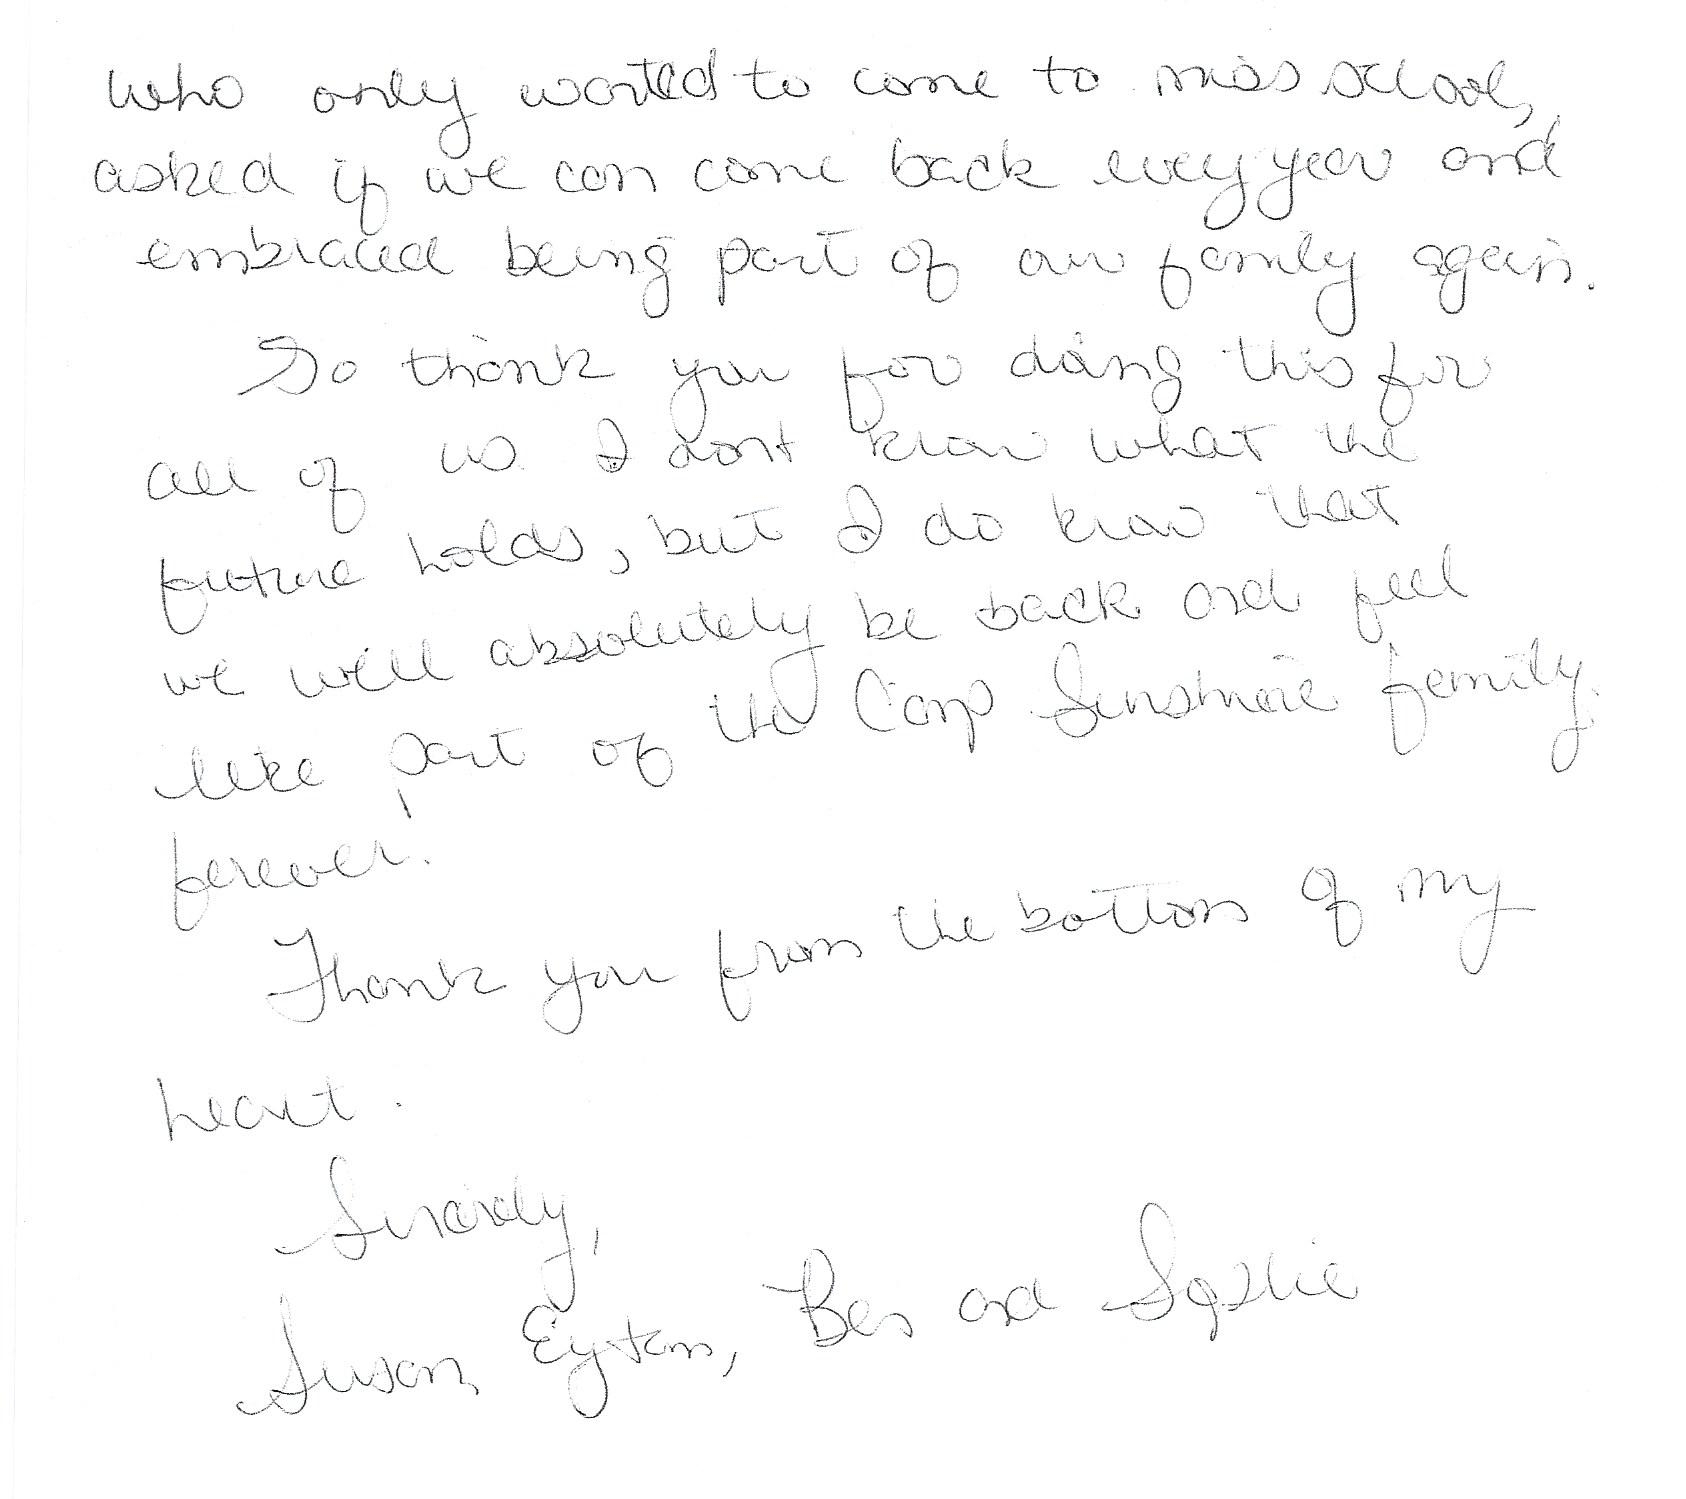 who only wanted to come to miss school,
asked if we can come back every year and
embraced being part of our family again.
So thank you for doing this for
all of us. I dont know what the
future holds, but I do know that
we will absolutely be back and feel
like part of the Camp Sunshine family
forever!
Thank you from the bottom of my
heart.
Sincerely,
Susan, Eytan, Ben and Sophie